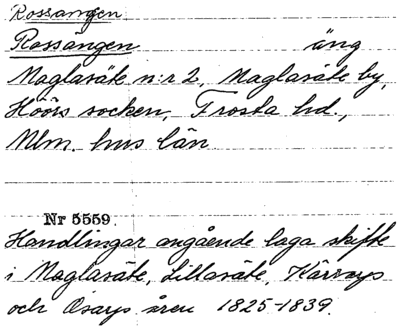 Rossängen
Rossängen äng
Maglasäte n:r 2, Maglasäte by,
Höörs socken, Frosta hd.,
Mlm. hus län
Nr 5559.
Handlingar angående laga skifte
i Maglasäte, Lillasäte, Kärrarps
och Osarps åren 1825-1839.